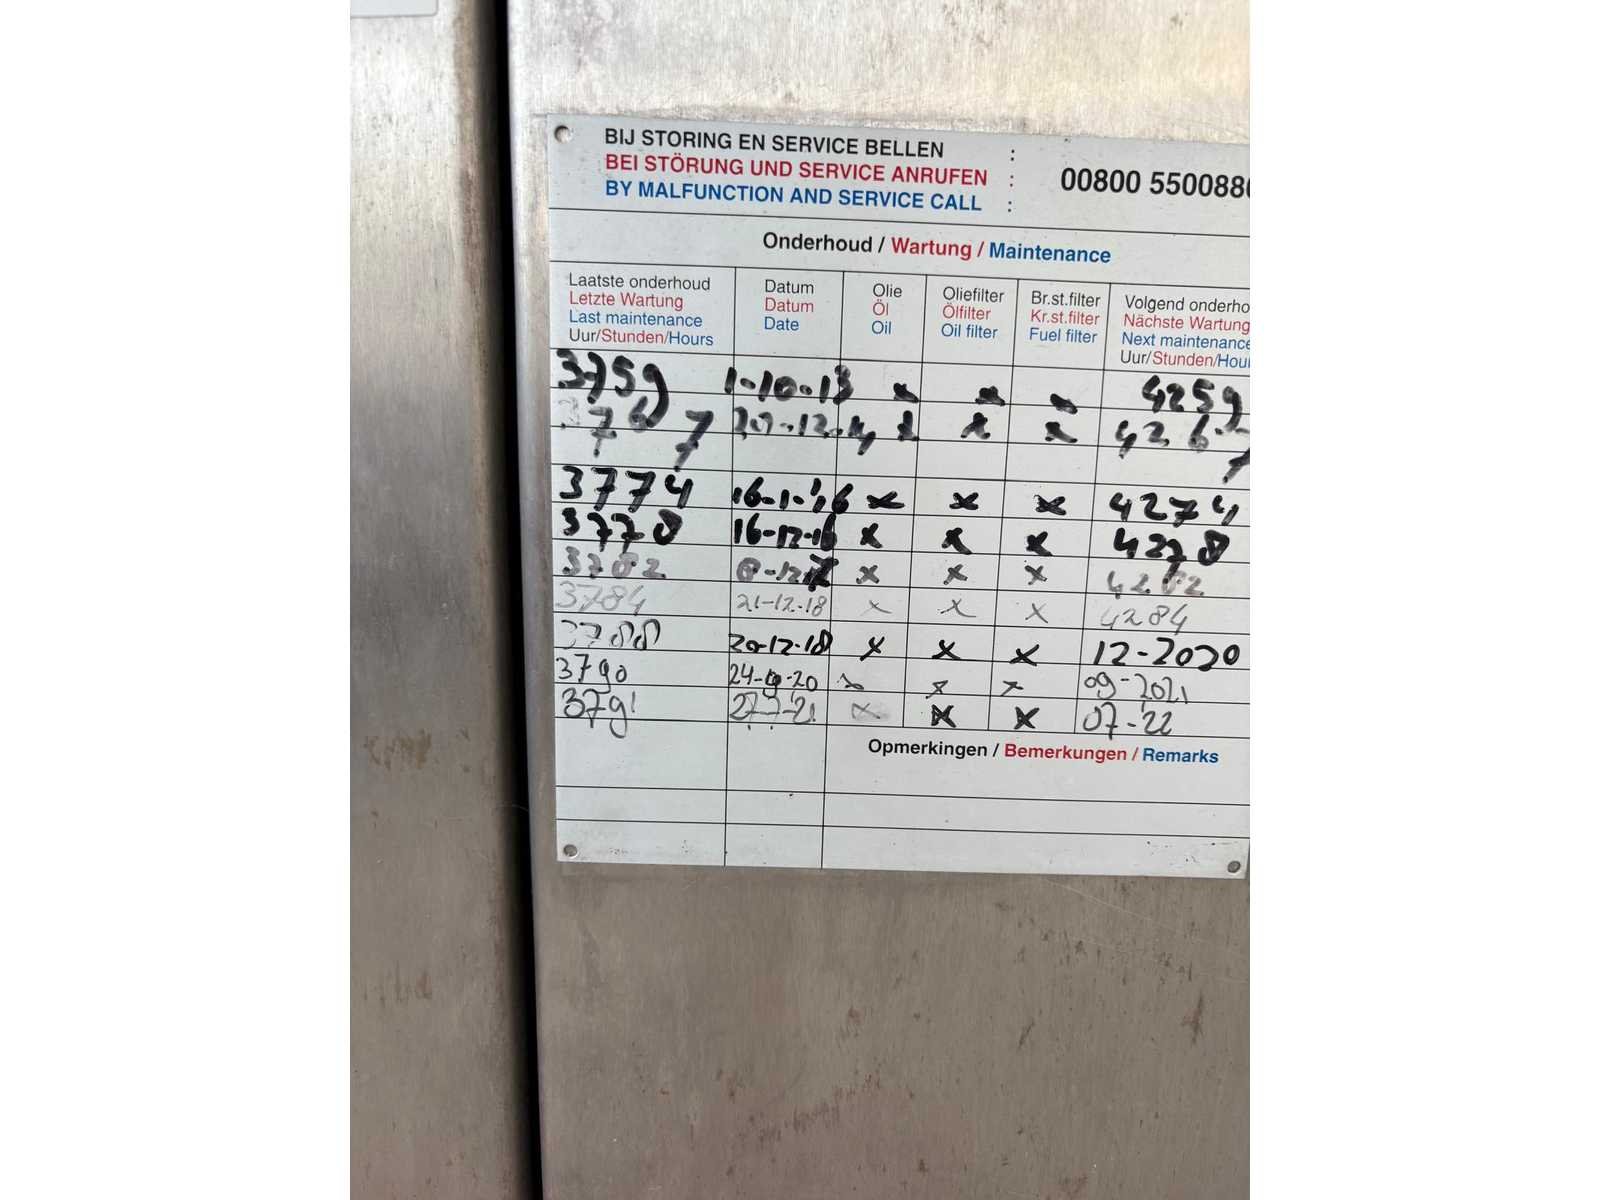 BIJ STORING EN SERVICE BELLEN :
BEI STÖRUNG UND SERVICE ANRUFEN : 00800 550088
BY MALFUNCTION AND SERVICE CALL :
Onderhoud / Wartung / Maintenance
Laatste onderhoud Datum Olie Oliefilter Br.st.filter Volgend onderho
Letzte Wartung Datum Öl Ölfilter Kr.st.filter Nächste Wartung
Last maintenance Date Oil Oil filter Fuel filter Next maintenance
Uur/Stunden/Hours Uur/Stunden/Hou
3759 1-10-13 x x x 4259
3767 x x x 4267
3774 16-1-'16 x x x 4274
3778 16-12-16 x x x 4278
3782 x x x 4282
3784 21-12-18 x x x 4284
3788 20-12-18 x x x 12-2020
3790 24-9-20 x x x 09-2021
3791 27-7-21 x x x 07-22
Opmerkingen / Bemerkungen / Remarks